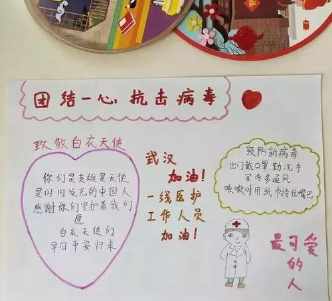 团结一心,抗击病毒
致敬白衣天使
你们是英雄是天使
是时时发光的中国人
感谢你们守护着我们
愿
白衣天使们
平平安安归来
武汉
加油!
一线医护
工作人员
加油!
预防新病毒
出门戴口罩勤洗手
室内多通风
咳嗽时用纸巾捂住嘴巴
最可爱
的
人